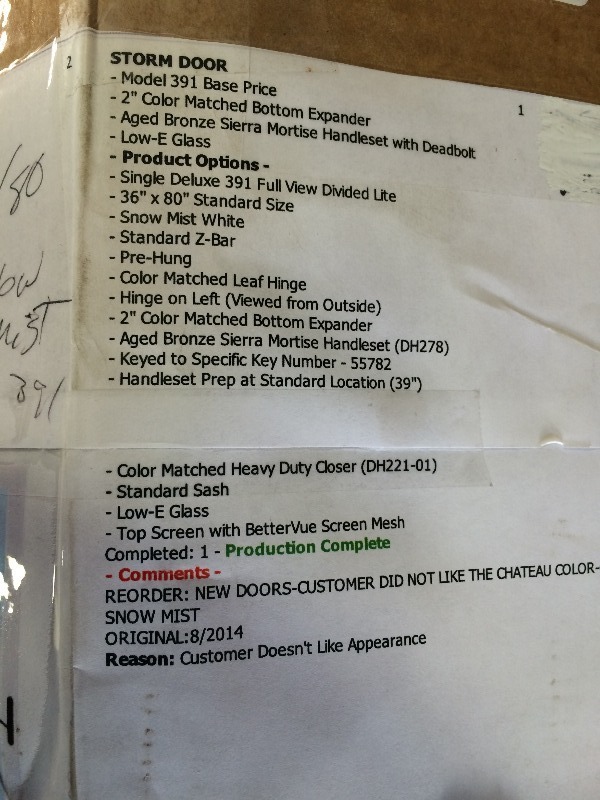 2
STORM DOOR
- Model 391 Base Price
1
- 2" Color Matched Bottom Expander
- Aged Bronze Sierra Mortise Handleset with Deadbolt
- Low-E Glass
- Product Options -
- Single Deluxe 391 Full View Divided Lite
- 36" x 80" Standard Size
- Snow Mist White
- Standard Z-Bar
- Pre-Hung
- Color Matched Leaf Hinge
- Hinge on Left (Viewed from Outside)
- 2" Color Matched Bottom Expander
- Aged Bronze Sierra Mortise Handleset (DH278)
- Keyed to Specific Key Number - 55782
- Handleset Prep at Standard Location (39")
- Color Matched Heavy Duty Closer (DH221-01)
- Standard Sash
- Low-E Glass
- Top Screen with BetterVue Screen Mesh
Completed: 1 - Production Complete
- Comments -
REORDER: NEW DOORS-CUSTOMER DID NOT LIKE THE CHATEAU COLOR-
SNOW MIST
ORIGINAL:8/2014
Reason: Customer Doesn't Like Appearance
391